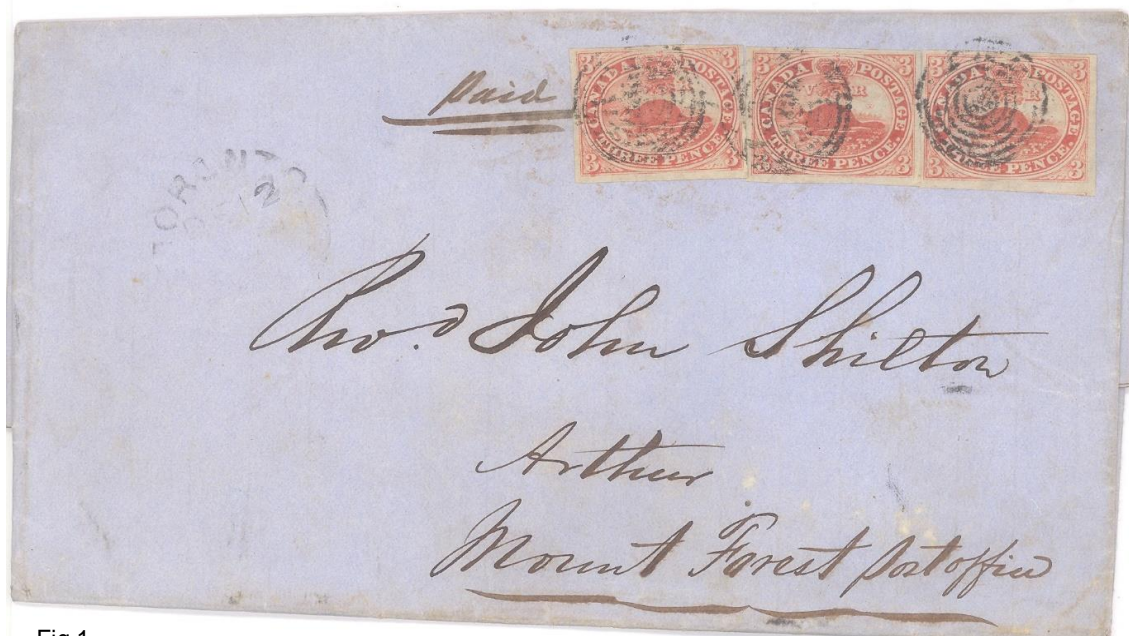 Paid
3 CANADA POSTAGE 3
3 THREE PENCE. 3
3 CANADA POSTAGE 3
V R
3 THREE PENCE. 3
3 POSTAGE 3
3 THREE PENCE. 3
TORONTO
Revd John Shilton
Arthur
Mount Forest Post office
Fig 1